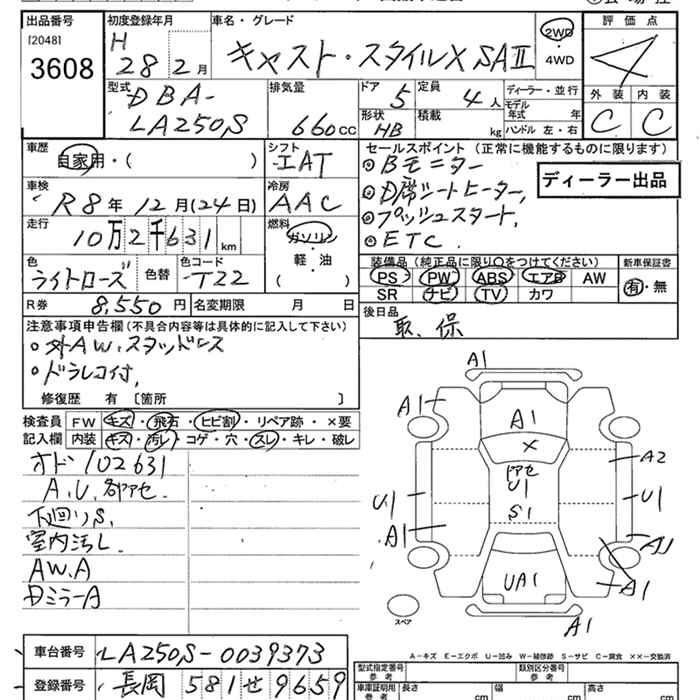 出品番号 初度登録年月 車名・グレード 評価点
[2048]
3608
H 28 2月 キャスト・スタイルX SAⅡ 2WD・4WD 4
型式 排気量 ドア 定員 ディーラー・並行 外装 内装
DBA- LA250S 660cc 5 4人
形状 積載 モデル年式 年
HB kg ハンドル 左・右 C C
車歴 シフト セールスポイント(正常に機能するものに限ります)
自家用・( ) IAT
◎Bモニター
車検 冷房
R8年12月(24日) AAC
◎D席シートヒーター,
◎プッシュスタート,
◎ETC.
ディーラー出品
走行 燃料
10万2千631km ガソリン・軽・油
( )
色 色替 色コード
ライトローズ T22
装備品(純正品に限り○をつけてください) 新車保証書
PS PW ABS エアB AW 有・無
SR ナビ TV カワ
R券 8,550円 名変期限 月 日
後日品
取、保
注意事項申告欄(不具合内容等は具体的に記入して下さい)
○外AW.スタッドレス
○ドラレコ付,
修復歴 有 [箇所 ]
検査員 FW キズ・飛石・ヒビ割・リペア跡・×要
記入欄 内装 キズ・汚レ・コゲ・穴・スレ・キレ・破レ
オド102631
A.U.各アセ.
下廻りS.
室内汚レ.
AW.A
DミラーA
A1
A1
A1
×
アセ
U1
S1
A2
U1
U1
A1
A1
A1
UA1
A1
スペア
A-キズ E-エクボ U-凹み W-補修跡 S-サビ C-腐食 ××-交換済
車台番号 LA250S-0039373
登録番号 長岡 581 せ 9659
型式指定番号 参考 類別区分番号 参考
車庫証明用 参考 長さ cm 幅 cm 高さ cm